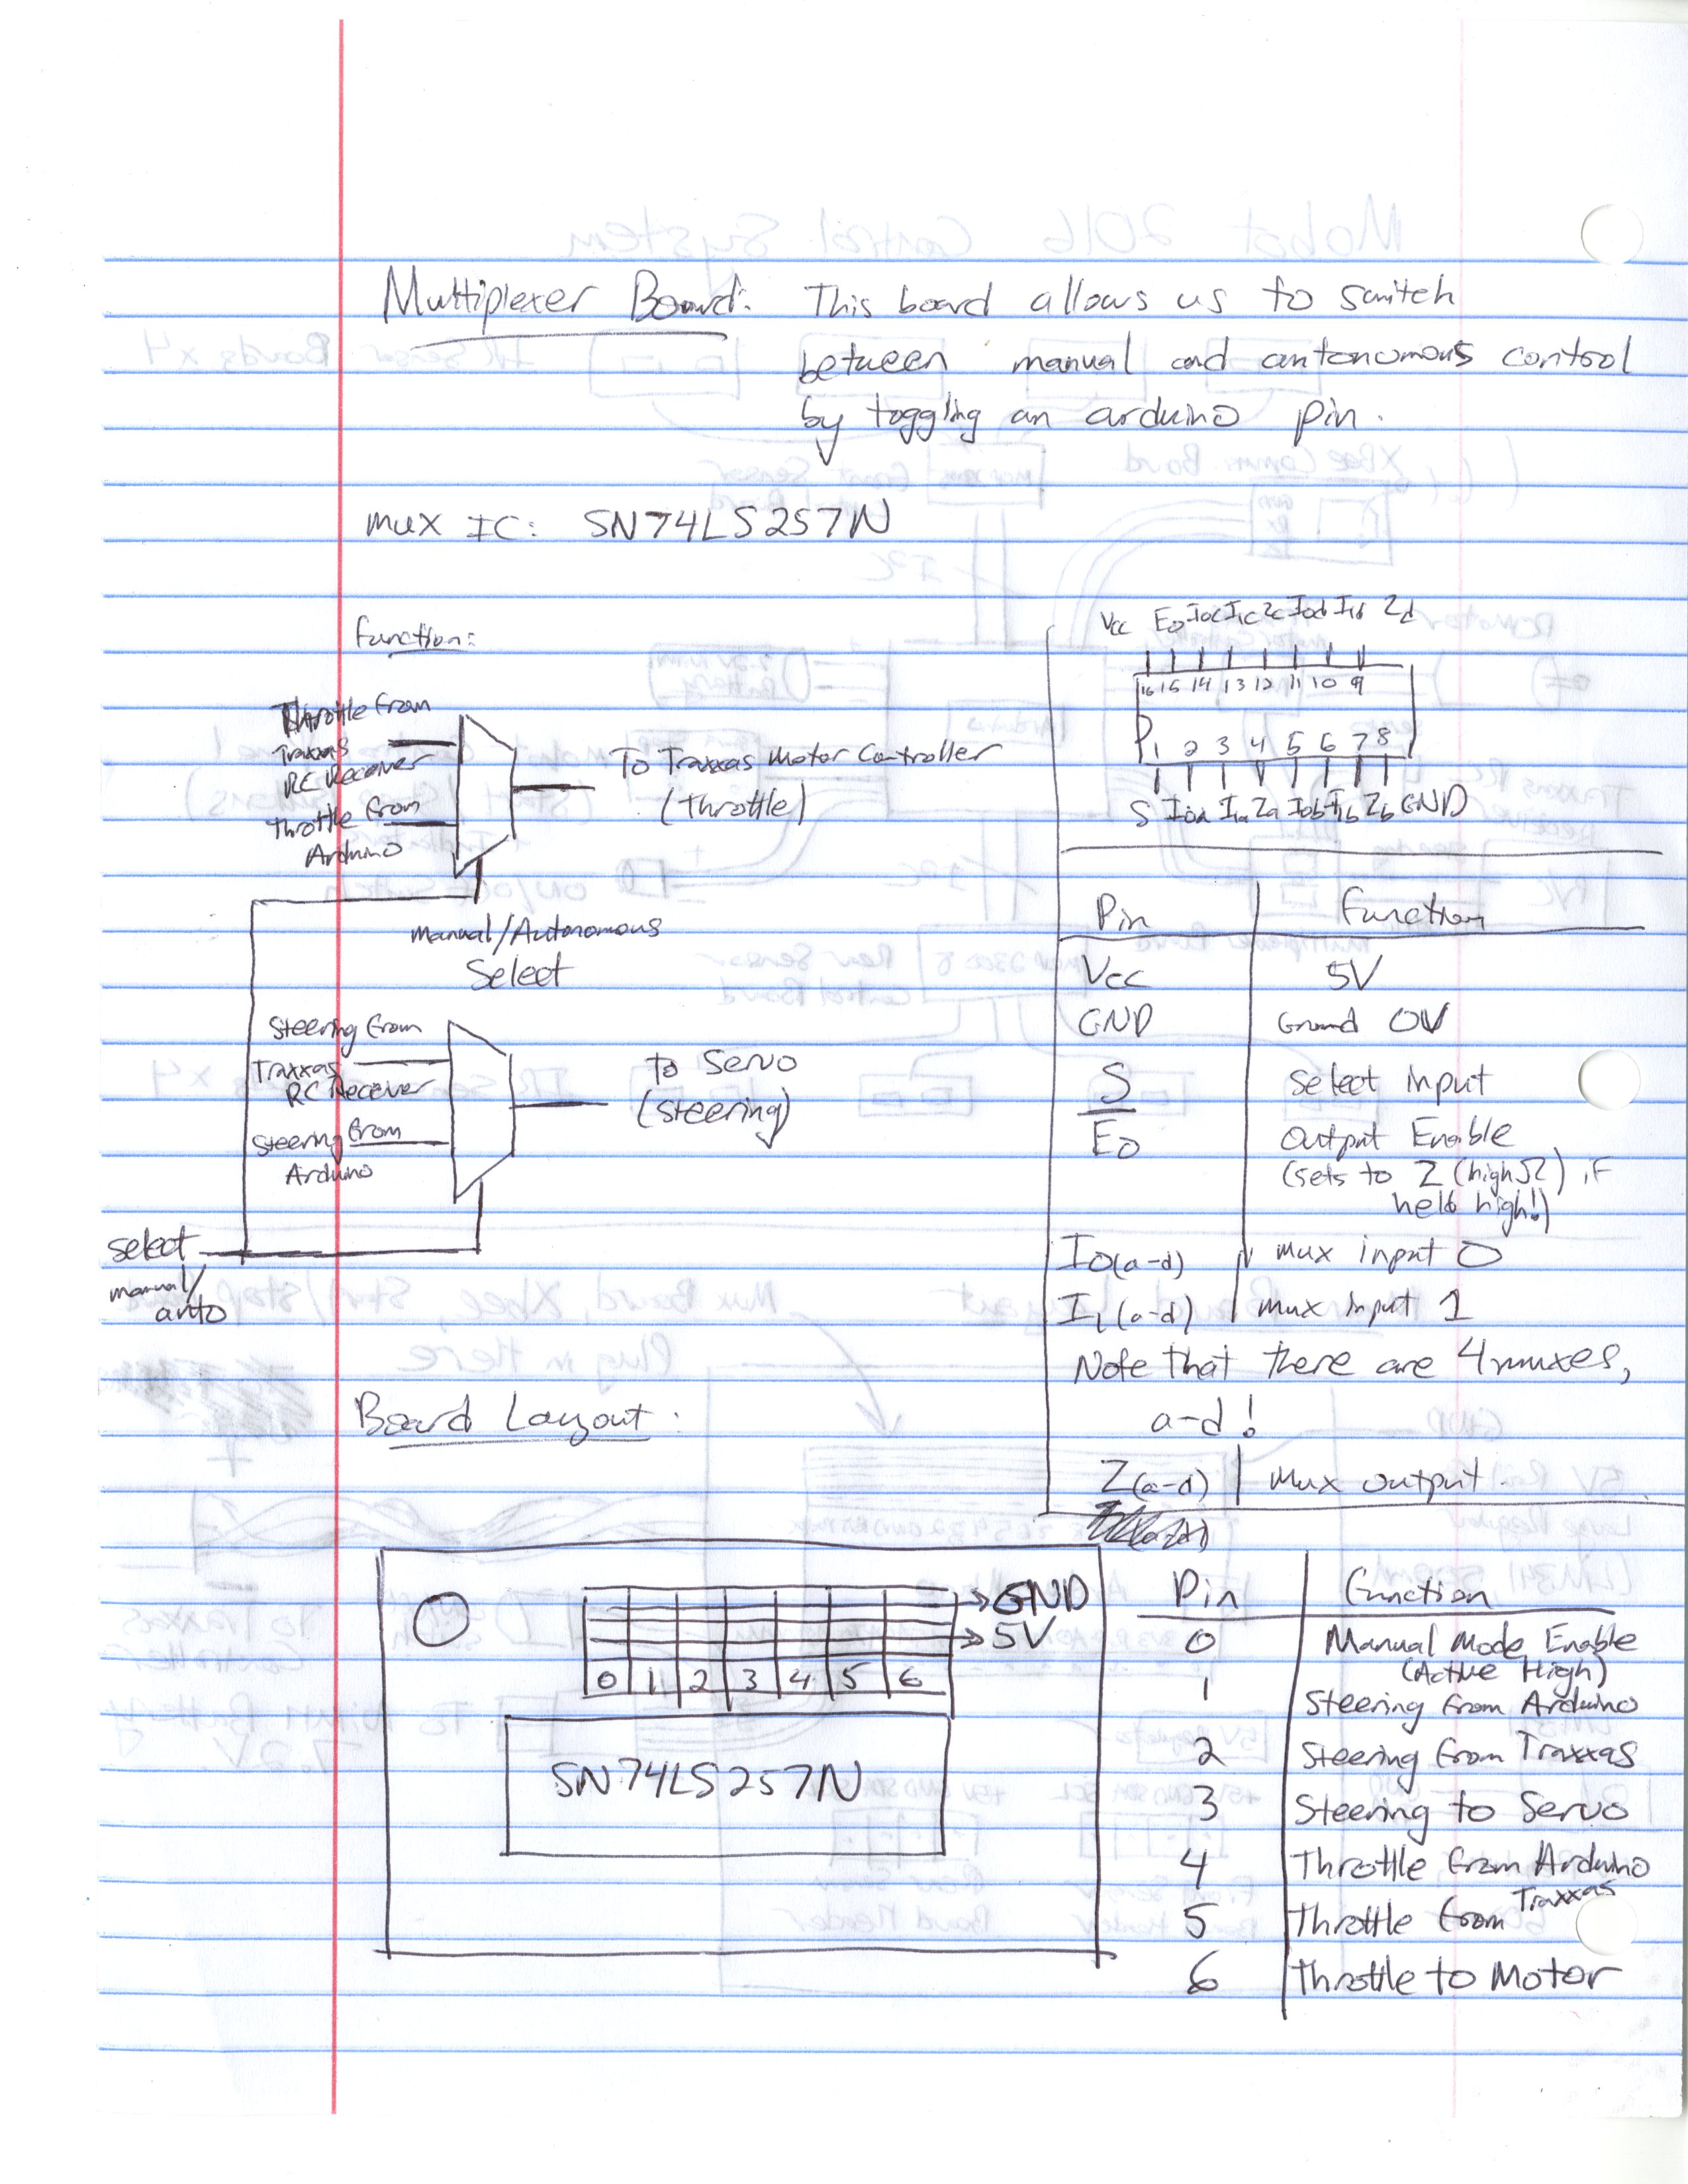 Multiplexer Board: This board allows us to switch
between manual and autonomous control
by toggling an arduino pin.
mux IC: SN74LS257N
Function:
Throttle from
Traxxas
RC Receiver
Throttle from
Arduino
To Traxxas Motor Controller
(Throttle)
Manual/Autonomous
Select
Steering from
Traxxas
RC Receiver
Steering from
Arduino
To Servo
(steering)
select
manual/
auto
Vcc E0 I0c I1c Zc I0d I1d Zd
16 15 14 13 12 11 10 9
1 2 3 4 5 6 7 8
S I0a I1a Za I0b I1b Zb GND
Pin Function
Vcc 5V
GND Ground 0V
S Select Input
E0 Output Enable
(sets to Z (high Ω) if
held high!)
I0(a-d) mux input 0
I1(a-d) mux input 1
Note that there are 4 muxes,
a-d!
Z(a-d) mux output.
Board Layout:
GND
5V
0 1 2 3 4 5 6
SN74LS257N
Pin Function
0 Manual Mode Enable
(Active High)
1 Steering from Arduino
2 Steering from Traxxas
3 Steering to Servo
4 Throttle from Arduino
5 Throttle from Traxxas
6 Throttle to Motor